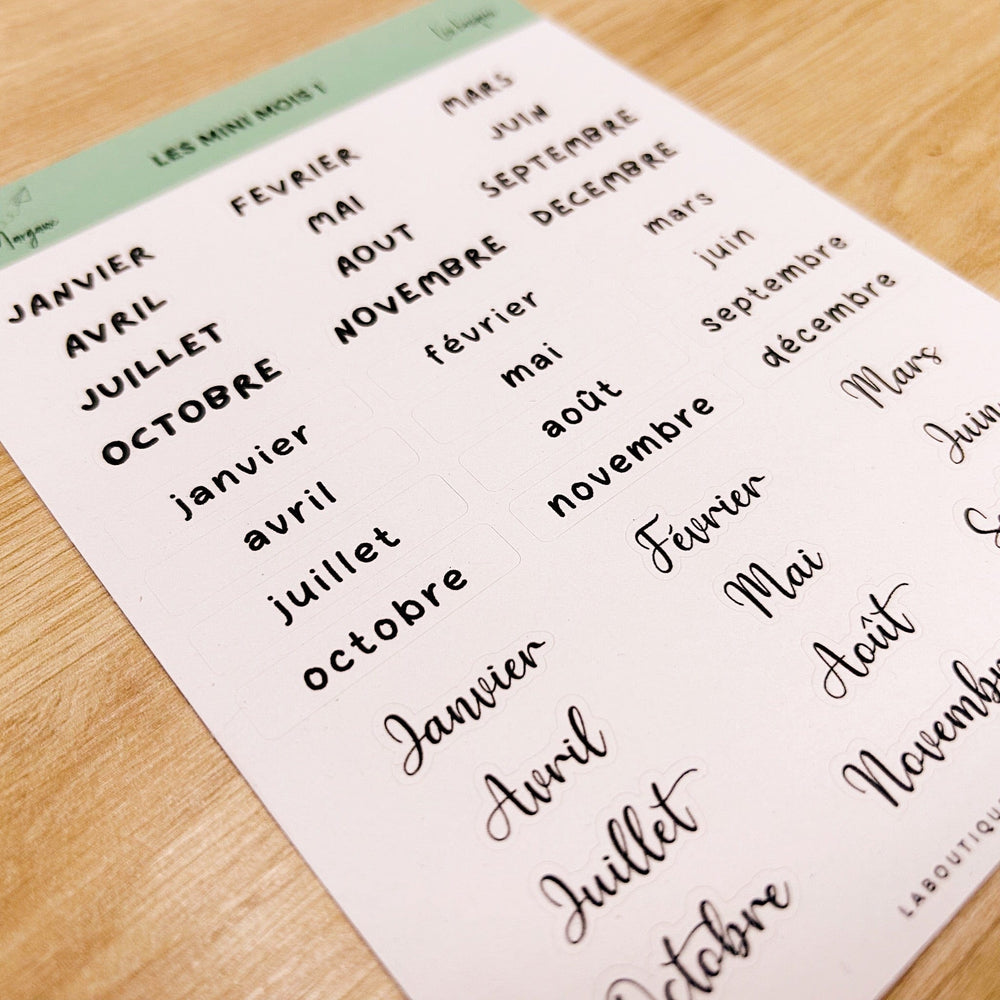 LES MINI MOIS !
JANVIER FEVRIER MARS
AVRIL MAI JUIN
JUILLET AOUT SEPTEMBRE
OCTOBRE NOVEMBRE DECEMBRE
janvier février mars
avril mai juin
juillet août septembre
octobre novembre décembre
Janvier Février Mars
Avril Mai Juin
Juillet Août
Octobre Novembr
LABOUTIQU